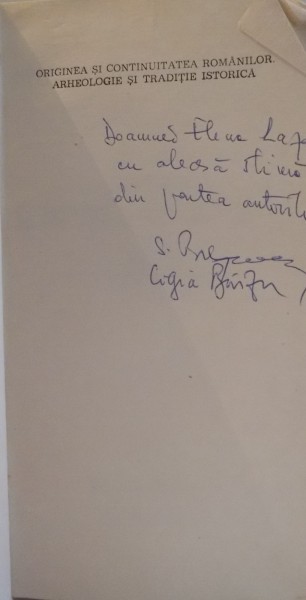 ORIGINEA ȘI CONTINUITATEA ROMÂNILOR.
ARHEOLOGIE ȘI TRADIȚIE ISTORICĂ
Doamnei Elena Laz
cu aleasă stimă
din partea autorilo
S. Brezeanu
Ligia Bârzu